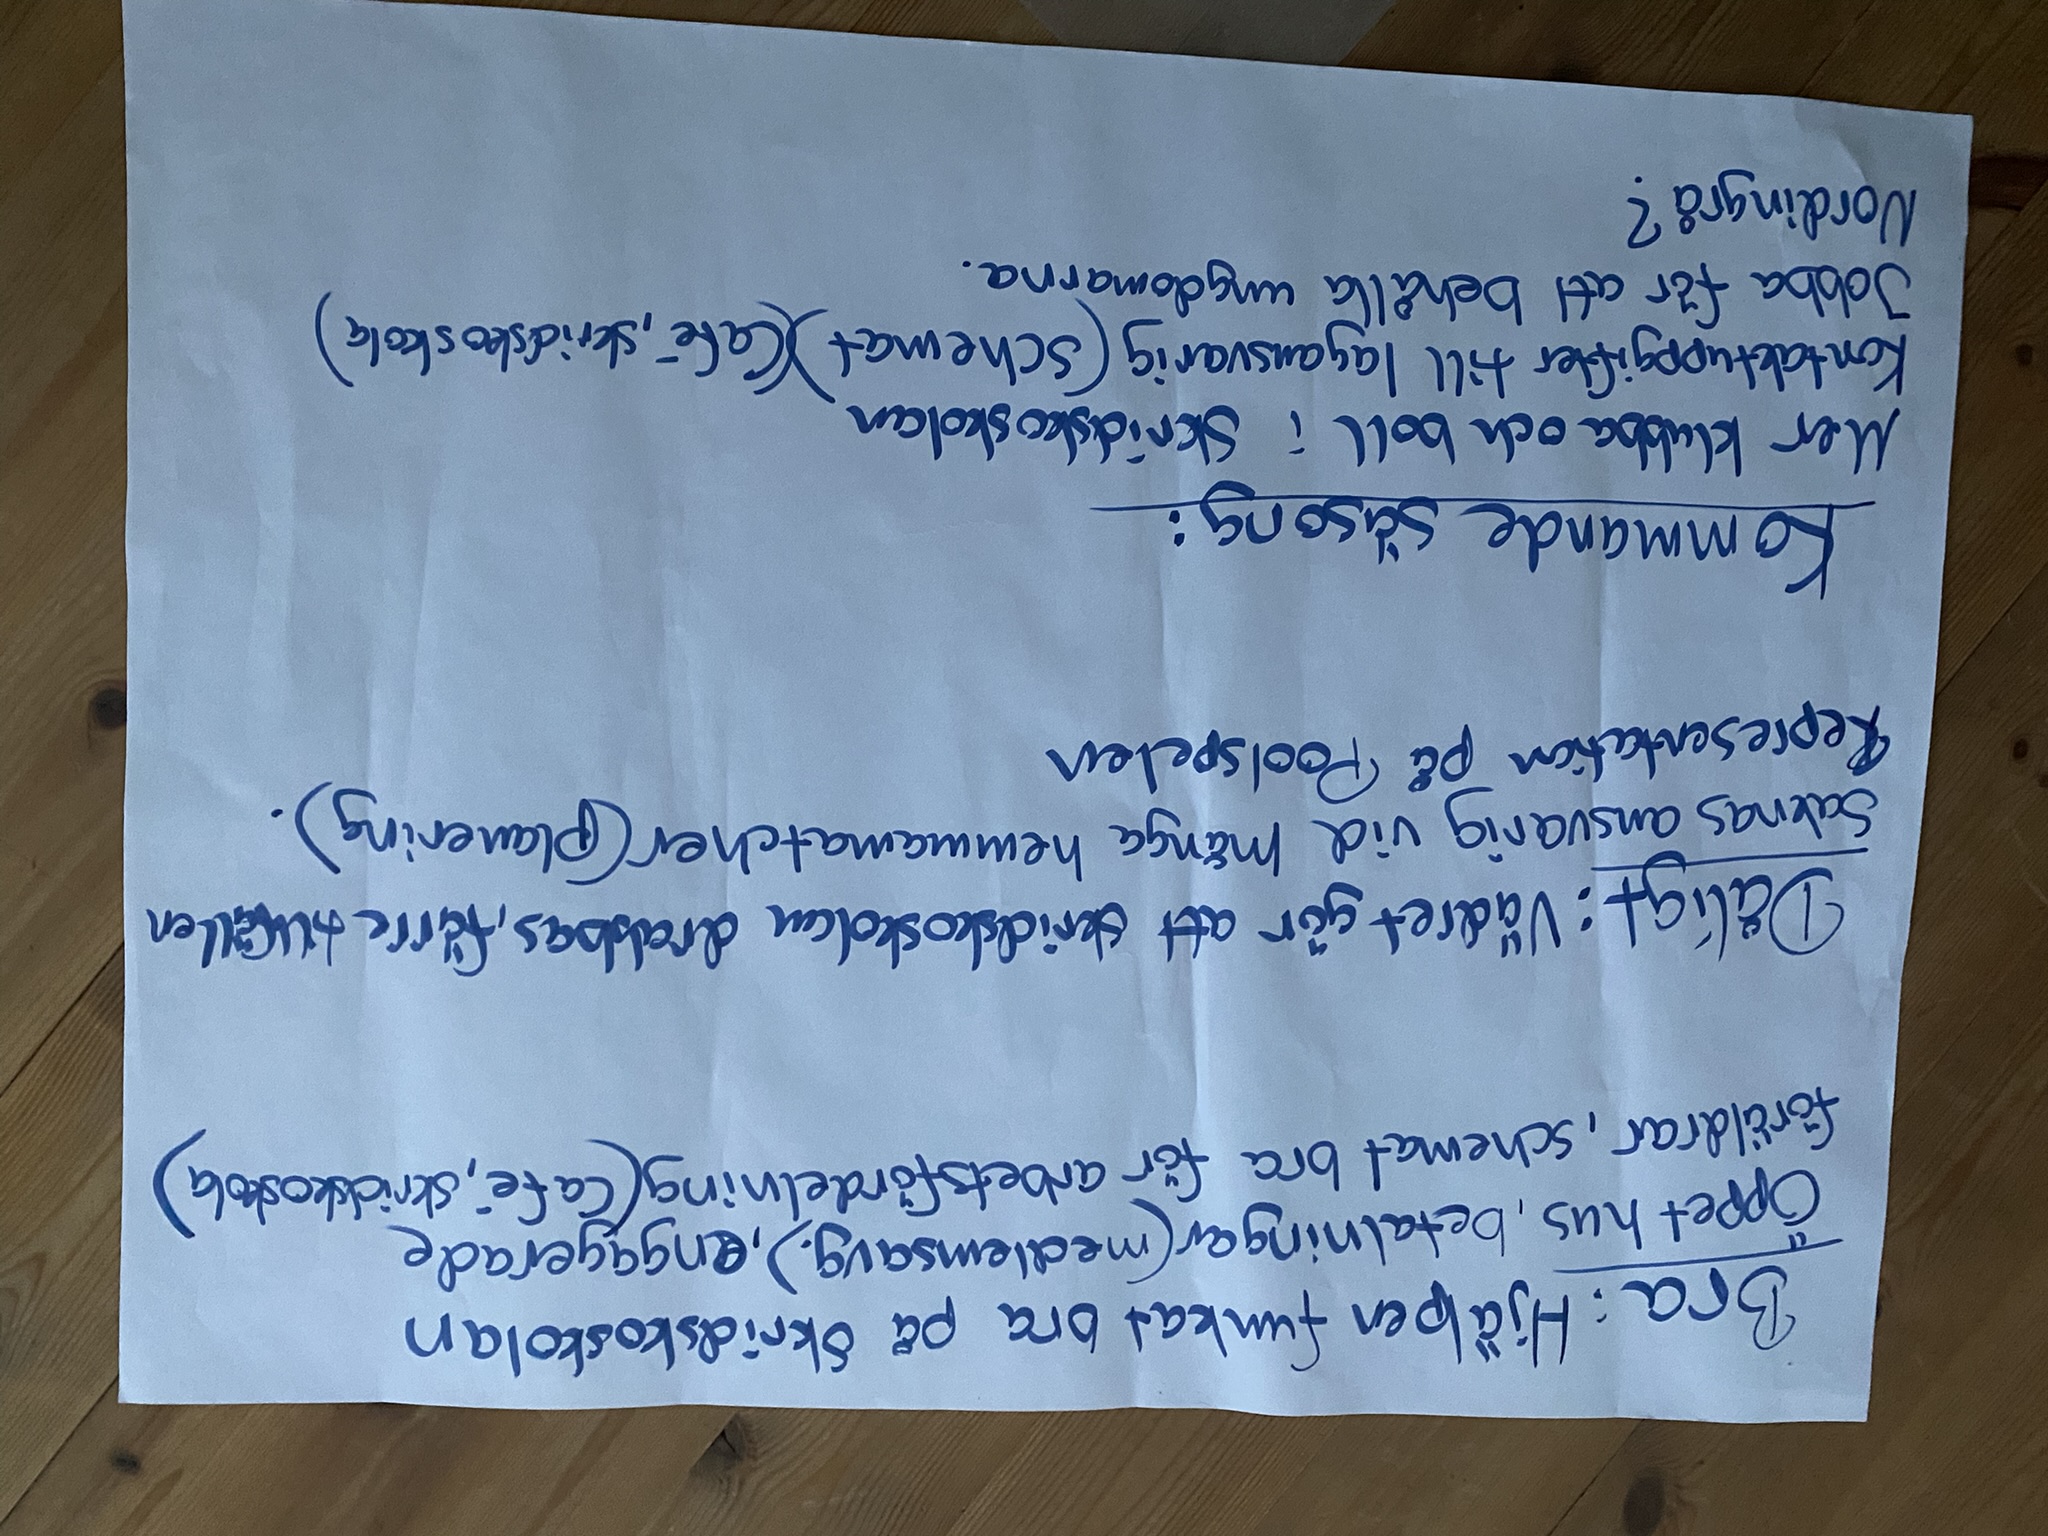 Bra: Hjälpen funkat bra på skridskoskolan
Öppet hus, betalningar (medlemsavg.), engagerade
föräldrar, schemat bra för arbetsfördelning (café, skridskoskola)
Dåligt: Vädret gör att skridskoskolan drabbas, färre tillfällen
Saknas ansvarig vid många hemmamatcher (planering).
Representation på Poolspelen
Kommande säsong:
Mer klubba och boll i skridskoskolan
Kontaktuppgifter till lagansvarig (schemat) (café, skridskoskola)
Jobba för att behålla ungdomarna.
Nordingrå?